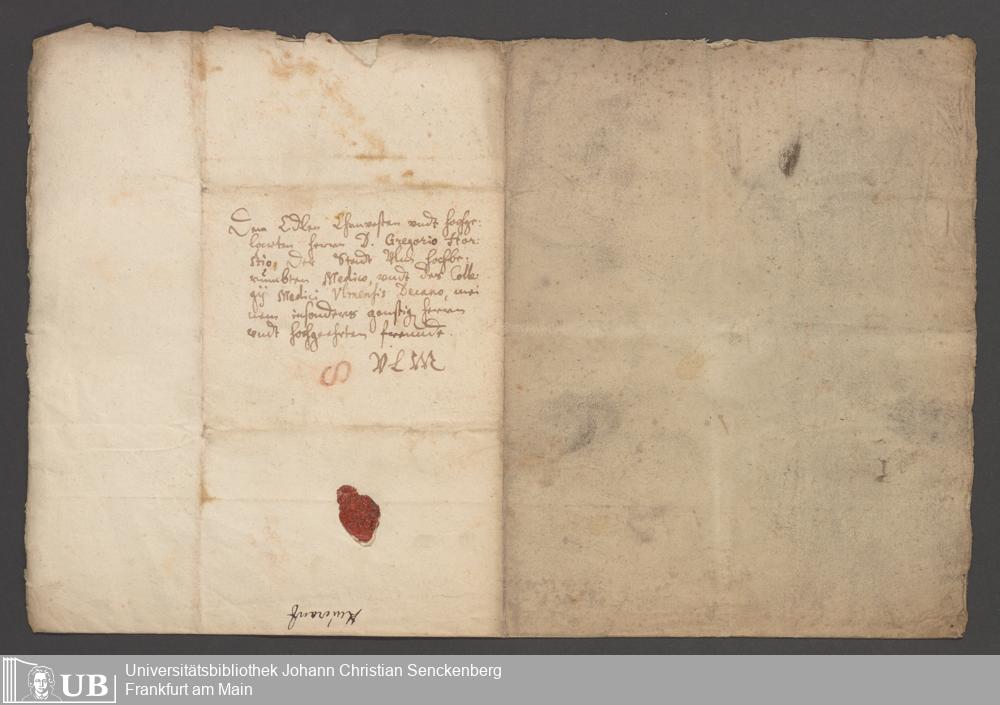 Dem Edlen Ehnvesten undt hochge-
larten herrn D. Gregorio Hor-
stio, Der Stadt Ulm hochbe-
rümbten Medico, undt des Colle-
gij Medici Ulmensis Decano, mei
nem insonders günstig herrn
undt hochgeehrten freundt.
Universitätsbibliothek Johann Christian Senckenberg
Frankfurt am Main
UB